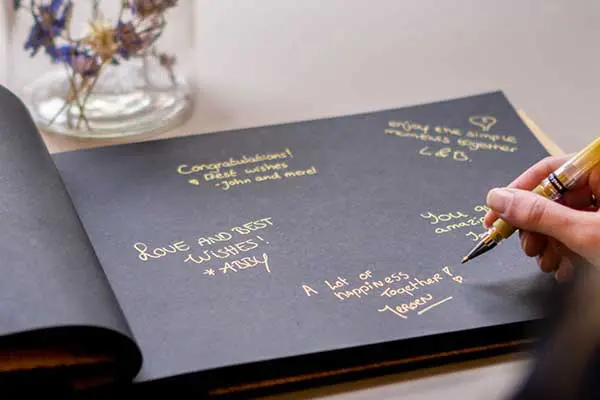 Congratulations!
Best wishes
-John and merel
enjoy the simple
moments together
L&B.
LOVE AND BEST
WISHES!
*ABBY
You
A LOT OF
happiness
Together!
JEROEN